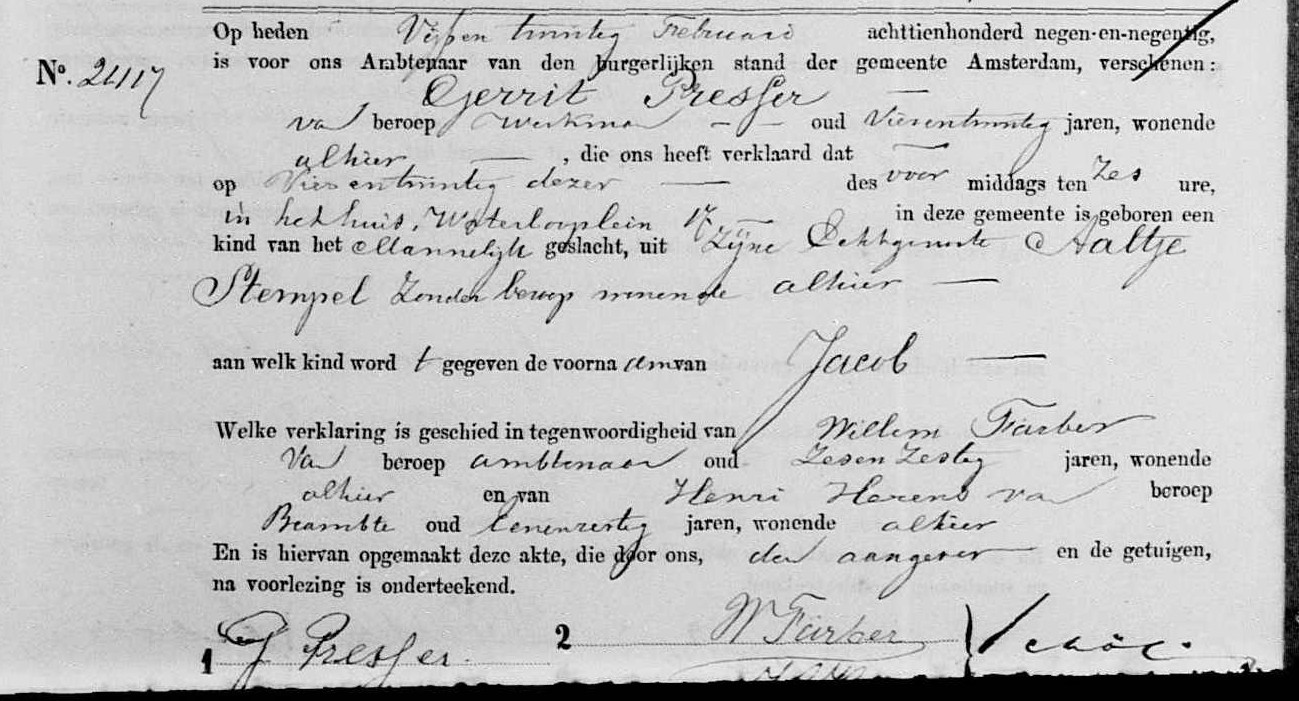 Op heden Vijf en twintig Februari achttienhonderd negen-en-negentig,
is voor ons Ambtenaar van den burgerlijken stand der gemeente Amsterdam, verschenen:
No. 2417
Gerrit Presser —
van beroep Werkman — — oud Vierentwintig jaren, wonende
alhier — , die ons heeft verklaard dat —
op Vier en twintig dezer — des voor middags ten Zes ure,
in het huis, Waterlooplein 17 — in deze gemeente is geboren een
kind van het Mannelijk geslacht, uit Zijne Echtgenoote Aaltje
Stempel Zonder beroep wonende alhier —
aan welk kind word t gegeven de voorna am van Jacob —
Welke verklaring is geschied in tegenwoordigheid van Willem Färber
Van beroep ambtenaar oud Zesenzestig jaren, wonende
alhier en van Henri Herens van beroep
Beambte oud jaren, wonende alhier
En is hiervan opgemaakt deze akte, die door ons, den aangever — en de getuigen,
na voorlezing is onderteekend.
1 G Presser. 2 W Färber